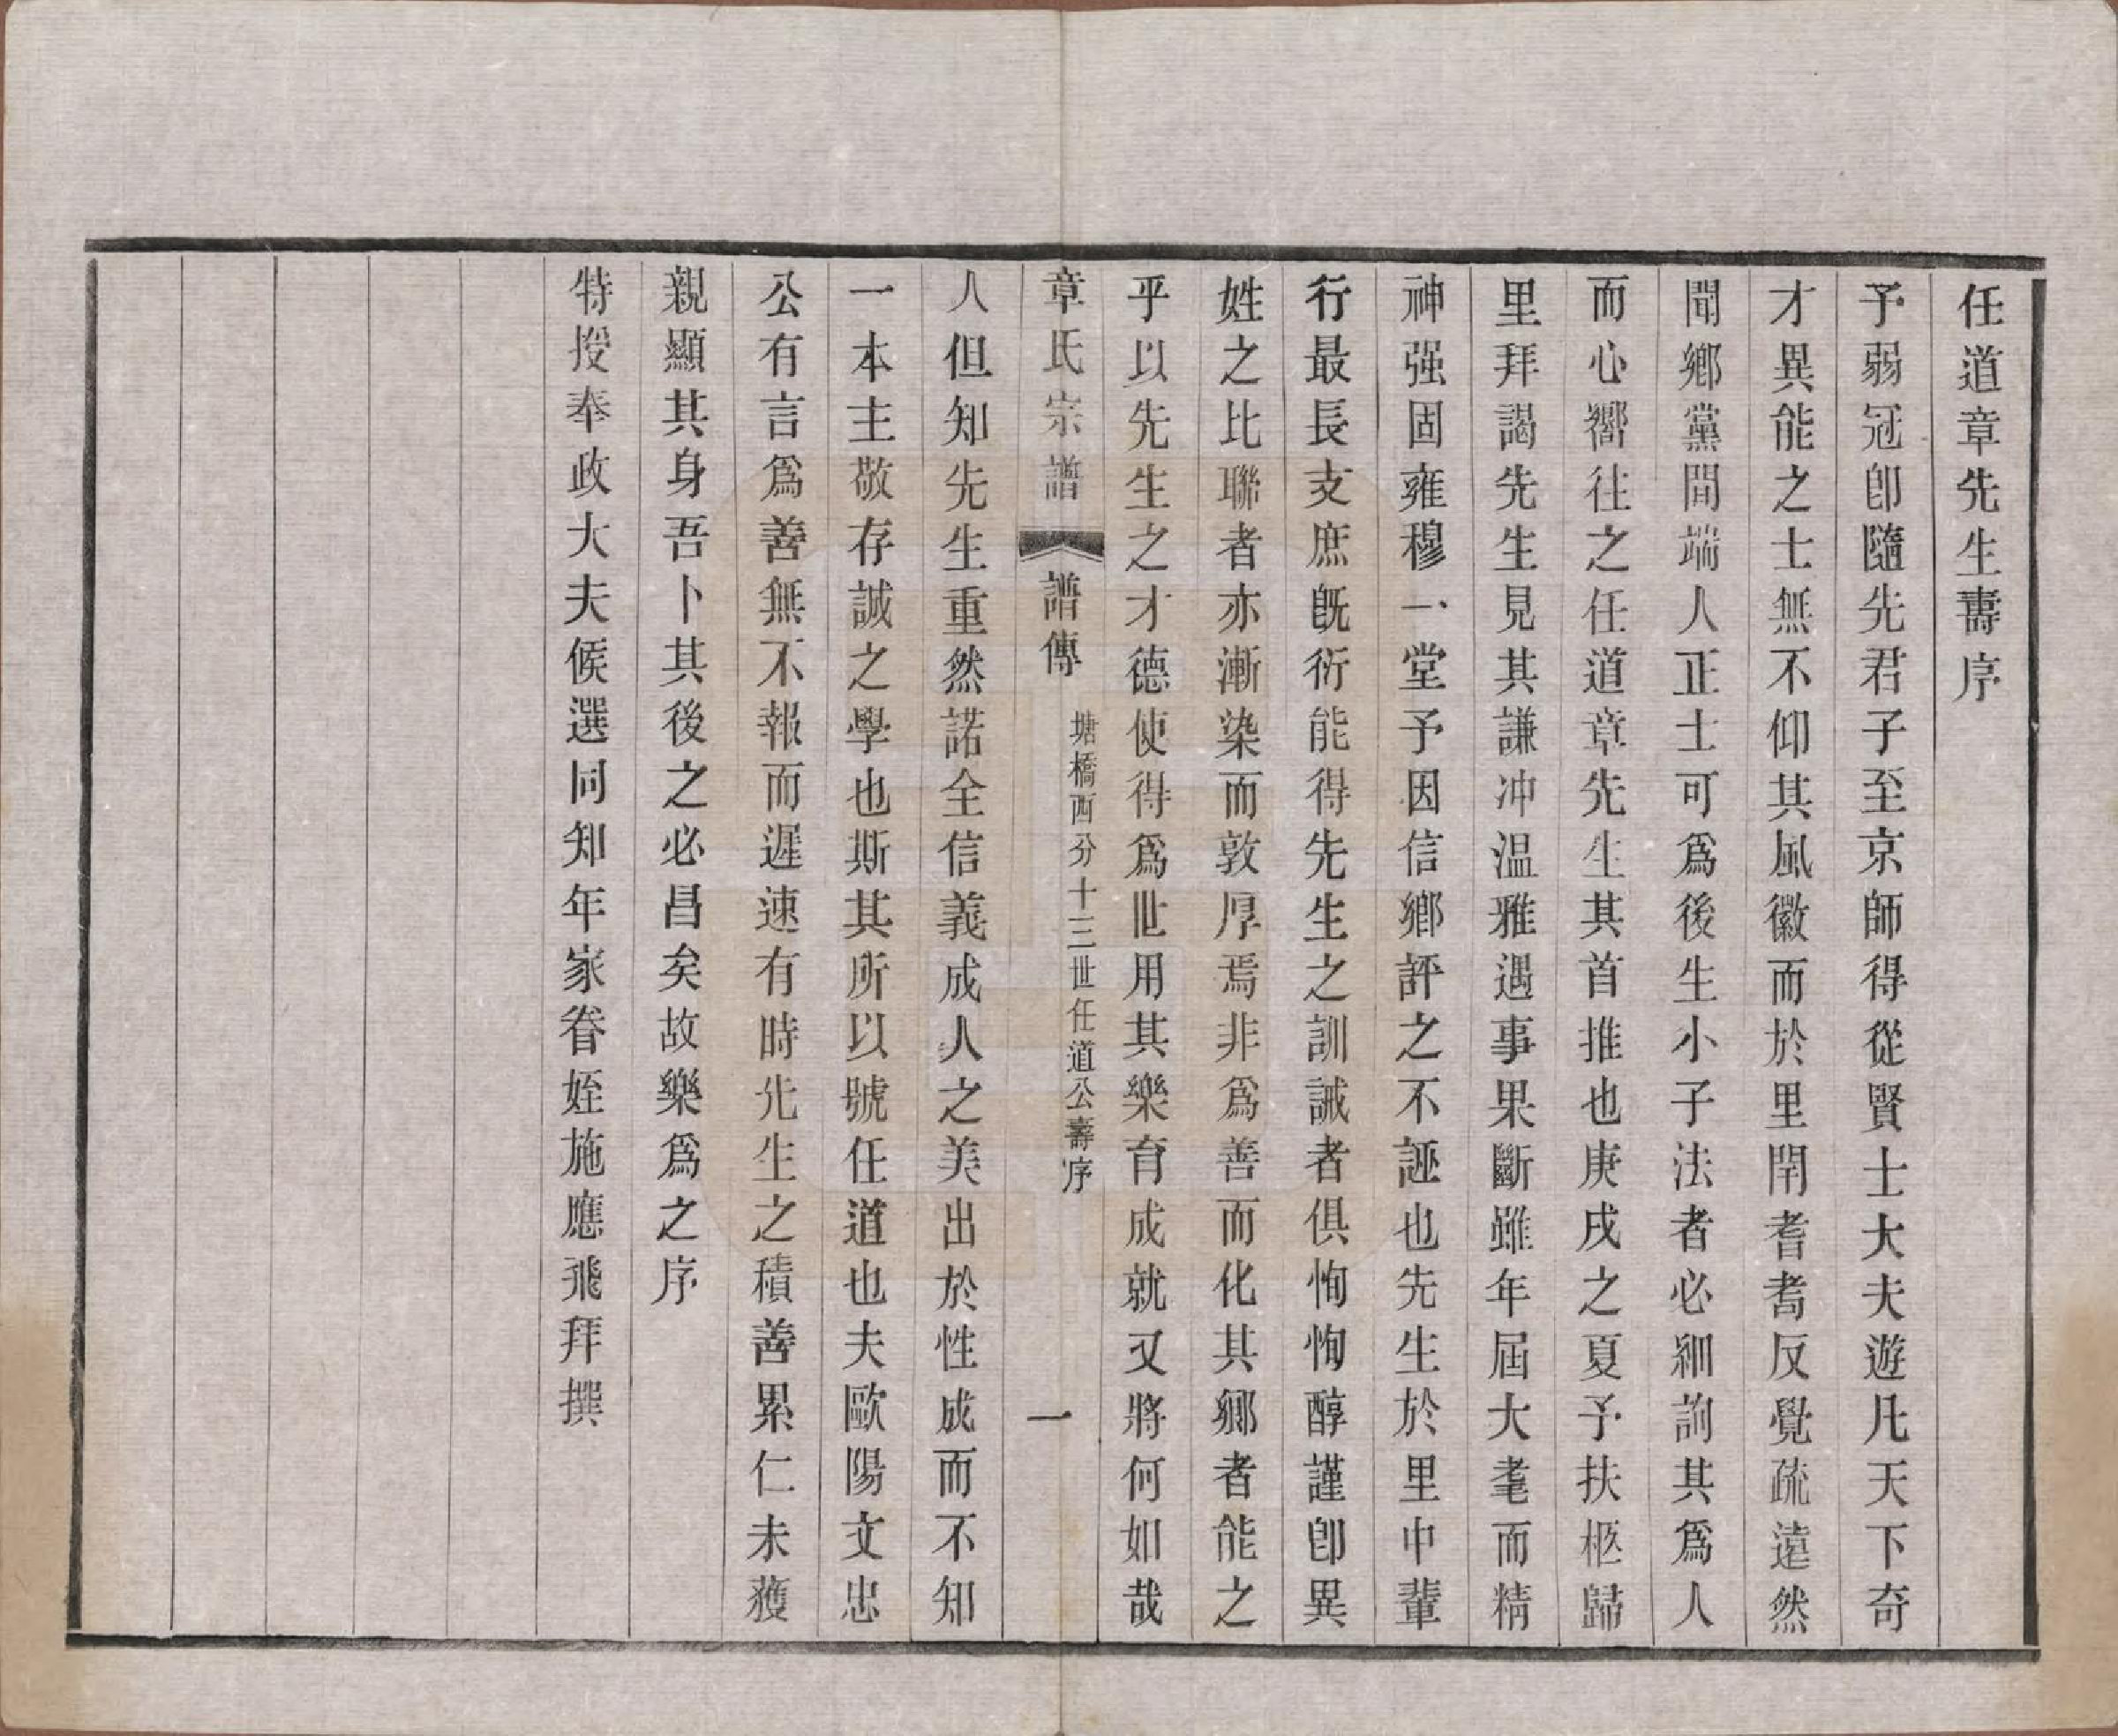 任道章先生壽序
予弱冠卽隨先君子至京師得從賢士大夫遊凡天下奇
才異能之士無不仰其風徽而於里閈耆耇反覺疏遠然
聞鄉黨間端人正士可爲後生小子法者必細詢其爲人
而心嚮往之任道章先生其首推也庚戌之夏予扶柩歸
里拜謁先生見其謙冲温雅遇事果斷雖年屆大耄而精
神强固雍穆一堂予因信鄉評之不誣也先生於里中輩
行最長支庶旣衍能得先生之訓誡者俱恂恂醇謹卽異
姓之比聯者亦漸染而敦厚焉非爲善而化其鄉者能之
乎以先生之才德使得爲世用其樂育成就又將何如哉
章氏宗譜 譜傳 塘橋西分十三世任道公壽序 一
人但知先生重然諾全信義成人之美出於性成而不知
一本主敬存誠之學也斯其所以號任道也夫歐陽文忠
公有言爲善無不報而遲速有時先生之積善累仁未獲
親顯其身吾卜其後之必昌矣故樂爲之序
特授奉政大夫候選同知年家眷姪施應飛拜撰